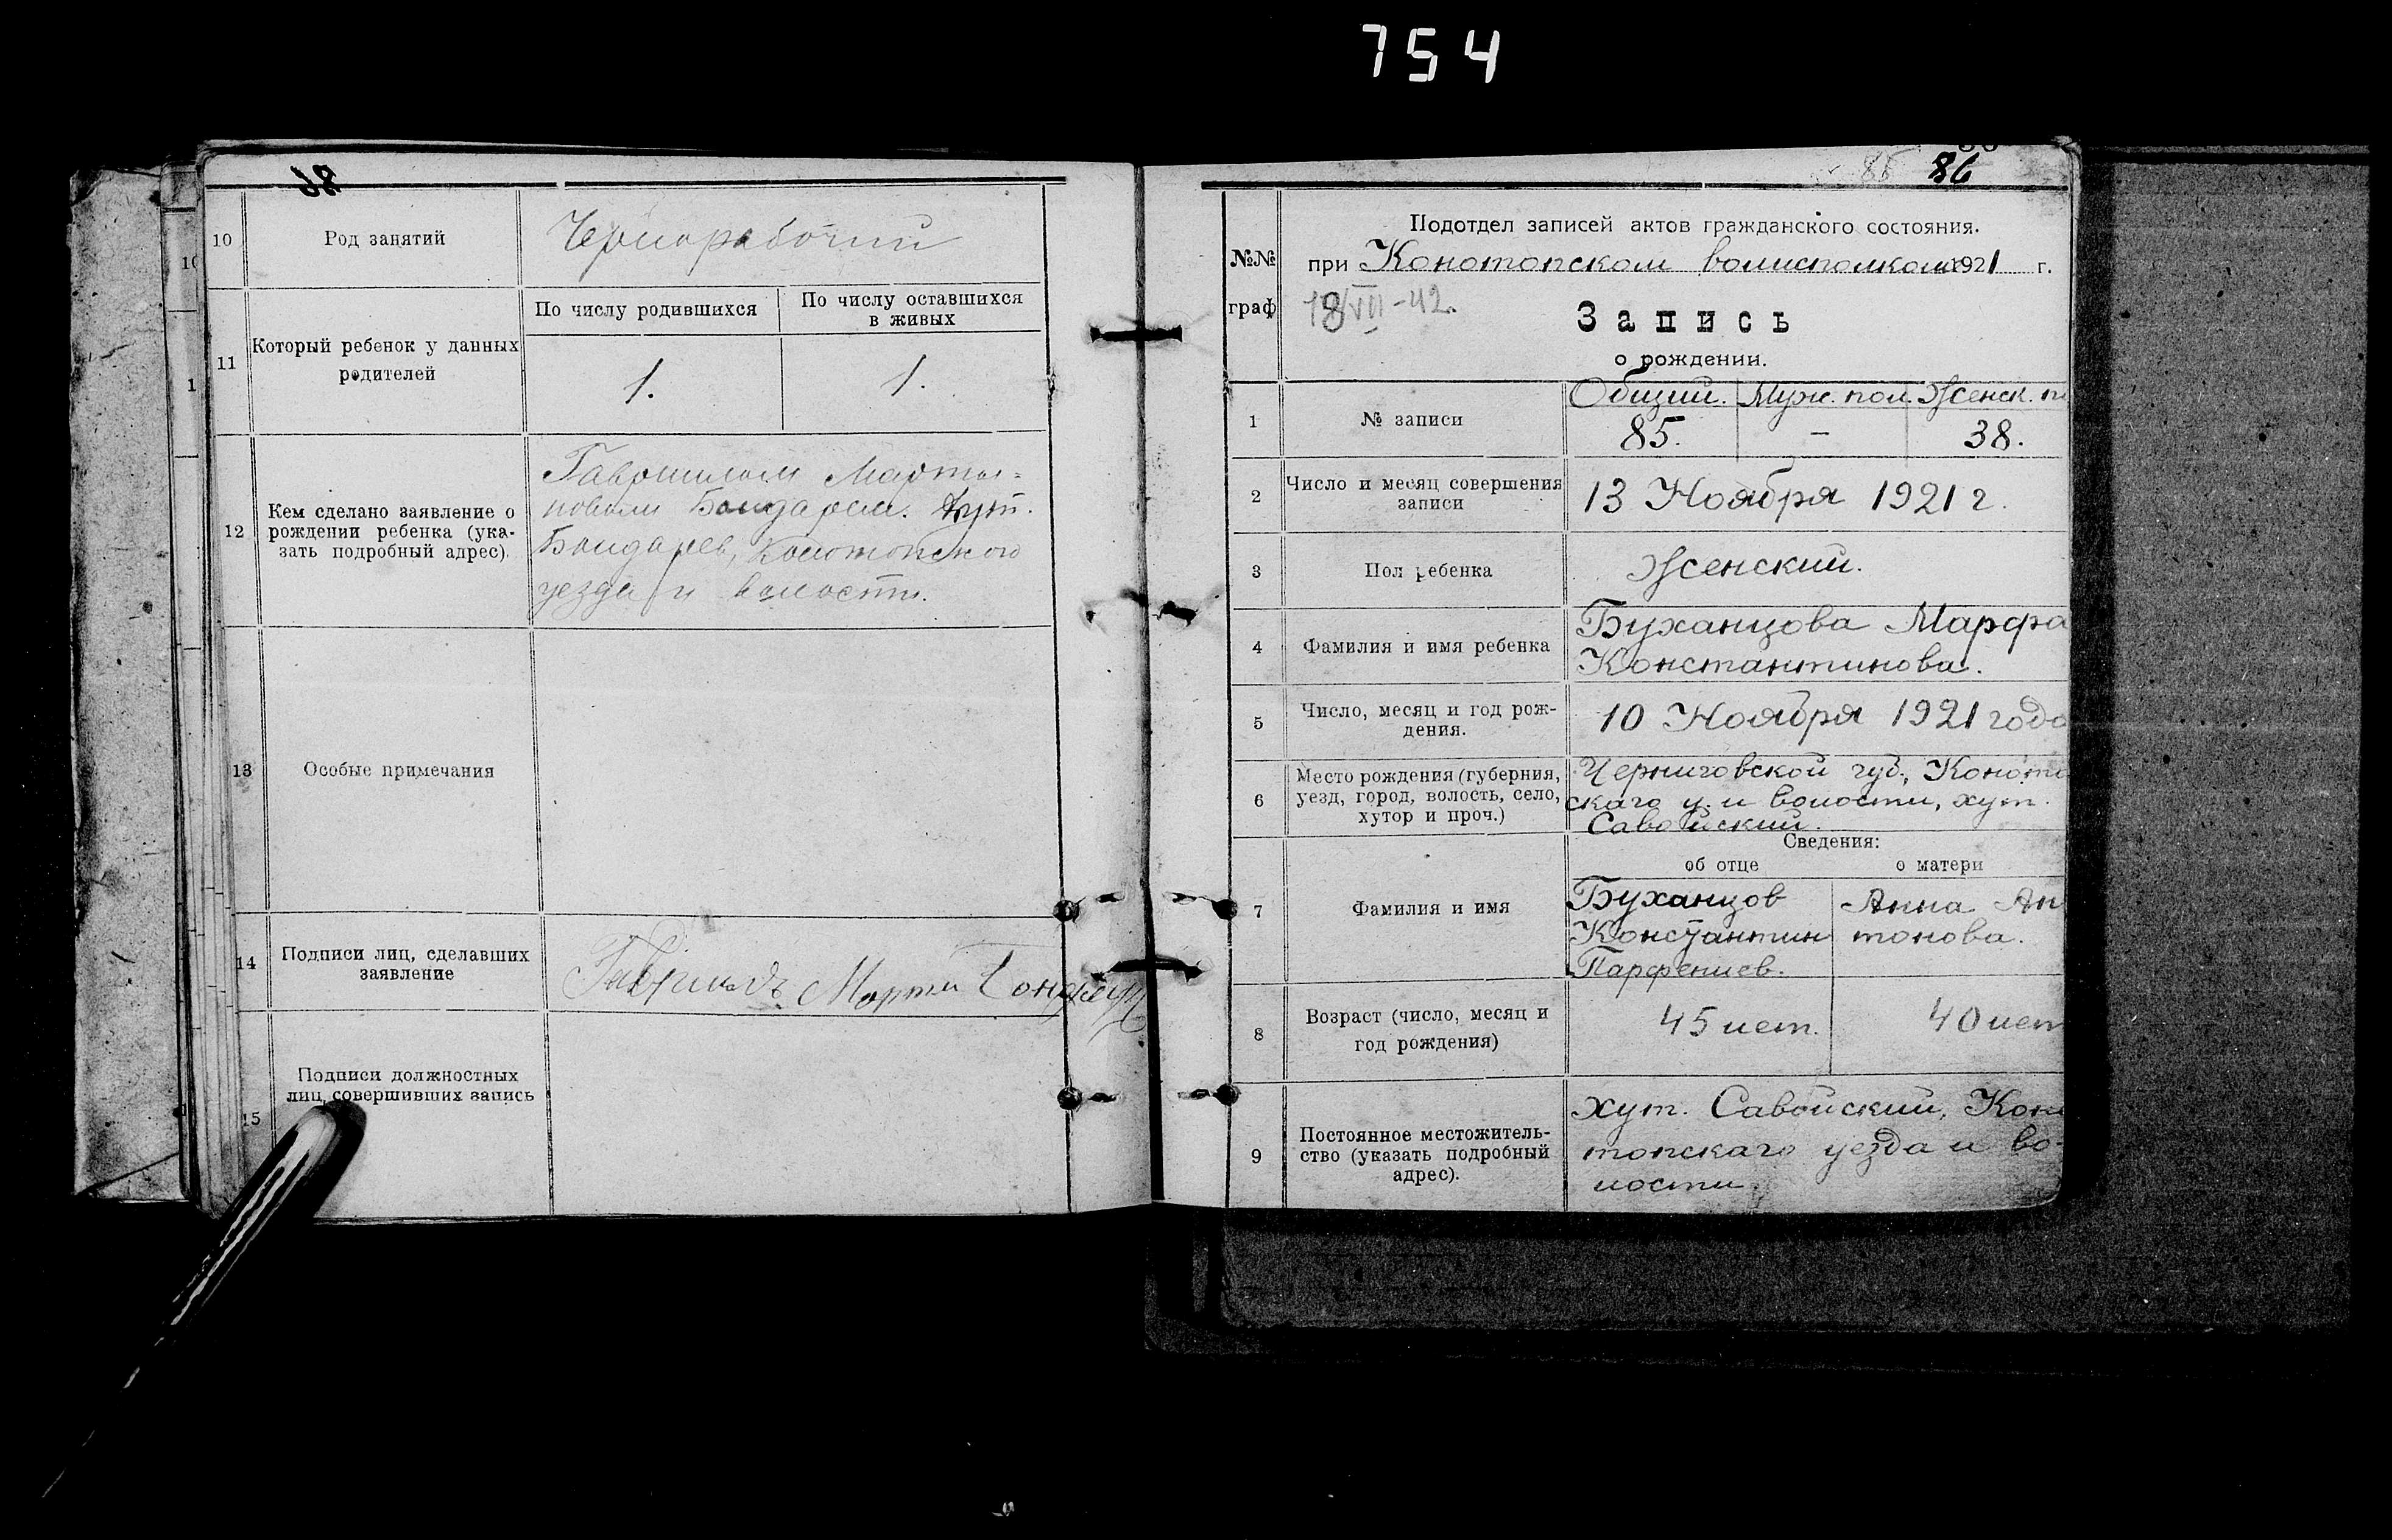 754
10
Род занятий
Чернорабочий
11
Который ребенок у данных
родителей
По числу родившихся
По числу оставшихся
в живых
1.
1.
12
Кем сделано заявление о
рождении ребенка (ука-
зать подробный адрес).
Марты-
новым Бондарем. Хут.
Бондарев, Конотопского
уезда и волости.
13
Особые примечания
14
Подписи лиц, сделавших
заявление
15
Подписи должностных
лиц, совершивших запись
86
№№
граф
Подотдел записей актов гражданского состояния.
при Конотопском волисполкоме 1921 г.
18/VII-42.
Запись
о рождении.
1
№ записи
Общий. Муж. пол. Женск. п
85. — 38.
2
Число и месяц совершения
записи
13 Ноября 1921 г.
3
Пол ребенка
Женский.
4
Фамилия и имя ребенка
Буханцова Марфа
Константинова.
5
Число, месяц и год рож-
дения.
10 Ноября 1921 года
6
Место рождения (губерния,
уезд, город, волость, село,
хутор и проч.)
Черниговской губ., Коното
скаго у. и волости, хут.
Савойский.
Сведения:
об отце
о матери
7
Фамилия и имя
Буханцов
Константин
Парфениев.
Анна Ан
тонова.
8
Возраст (число, месяц и
год рождения)
45 лет.
40 лет
9
Постоянное местожитель-
ство (указать подробный
адрес).
хут. Савойский, Коно
топскаго уезда и во-
лости.